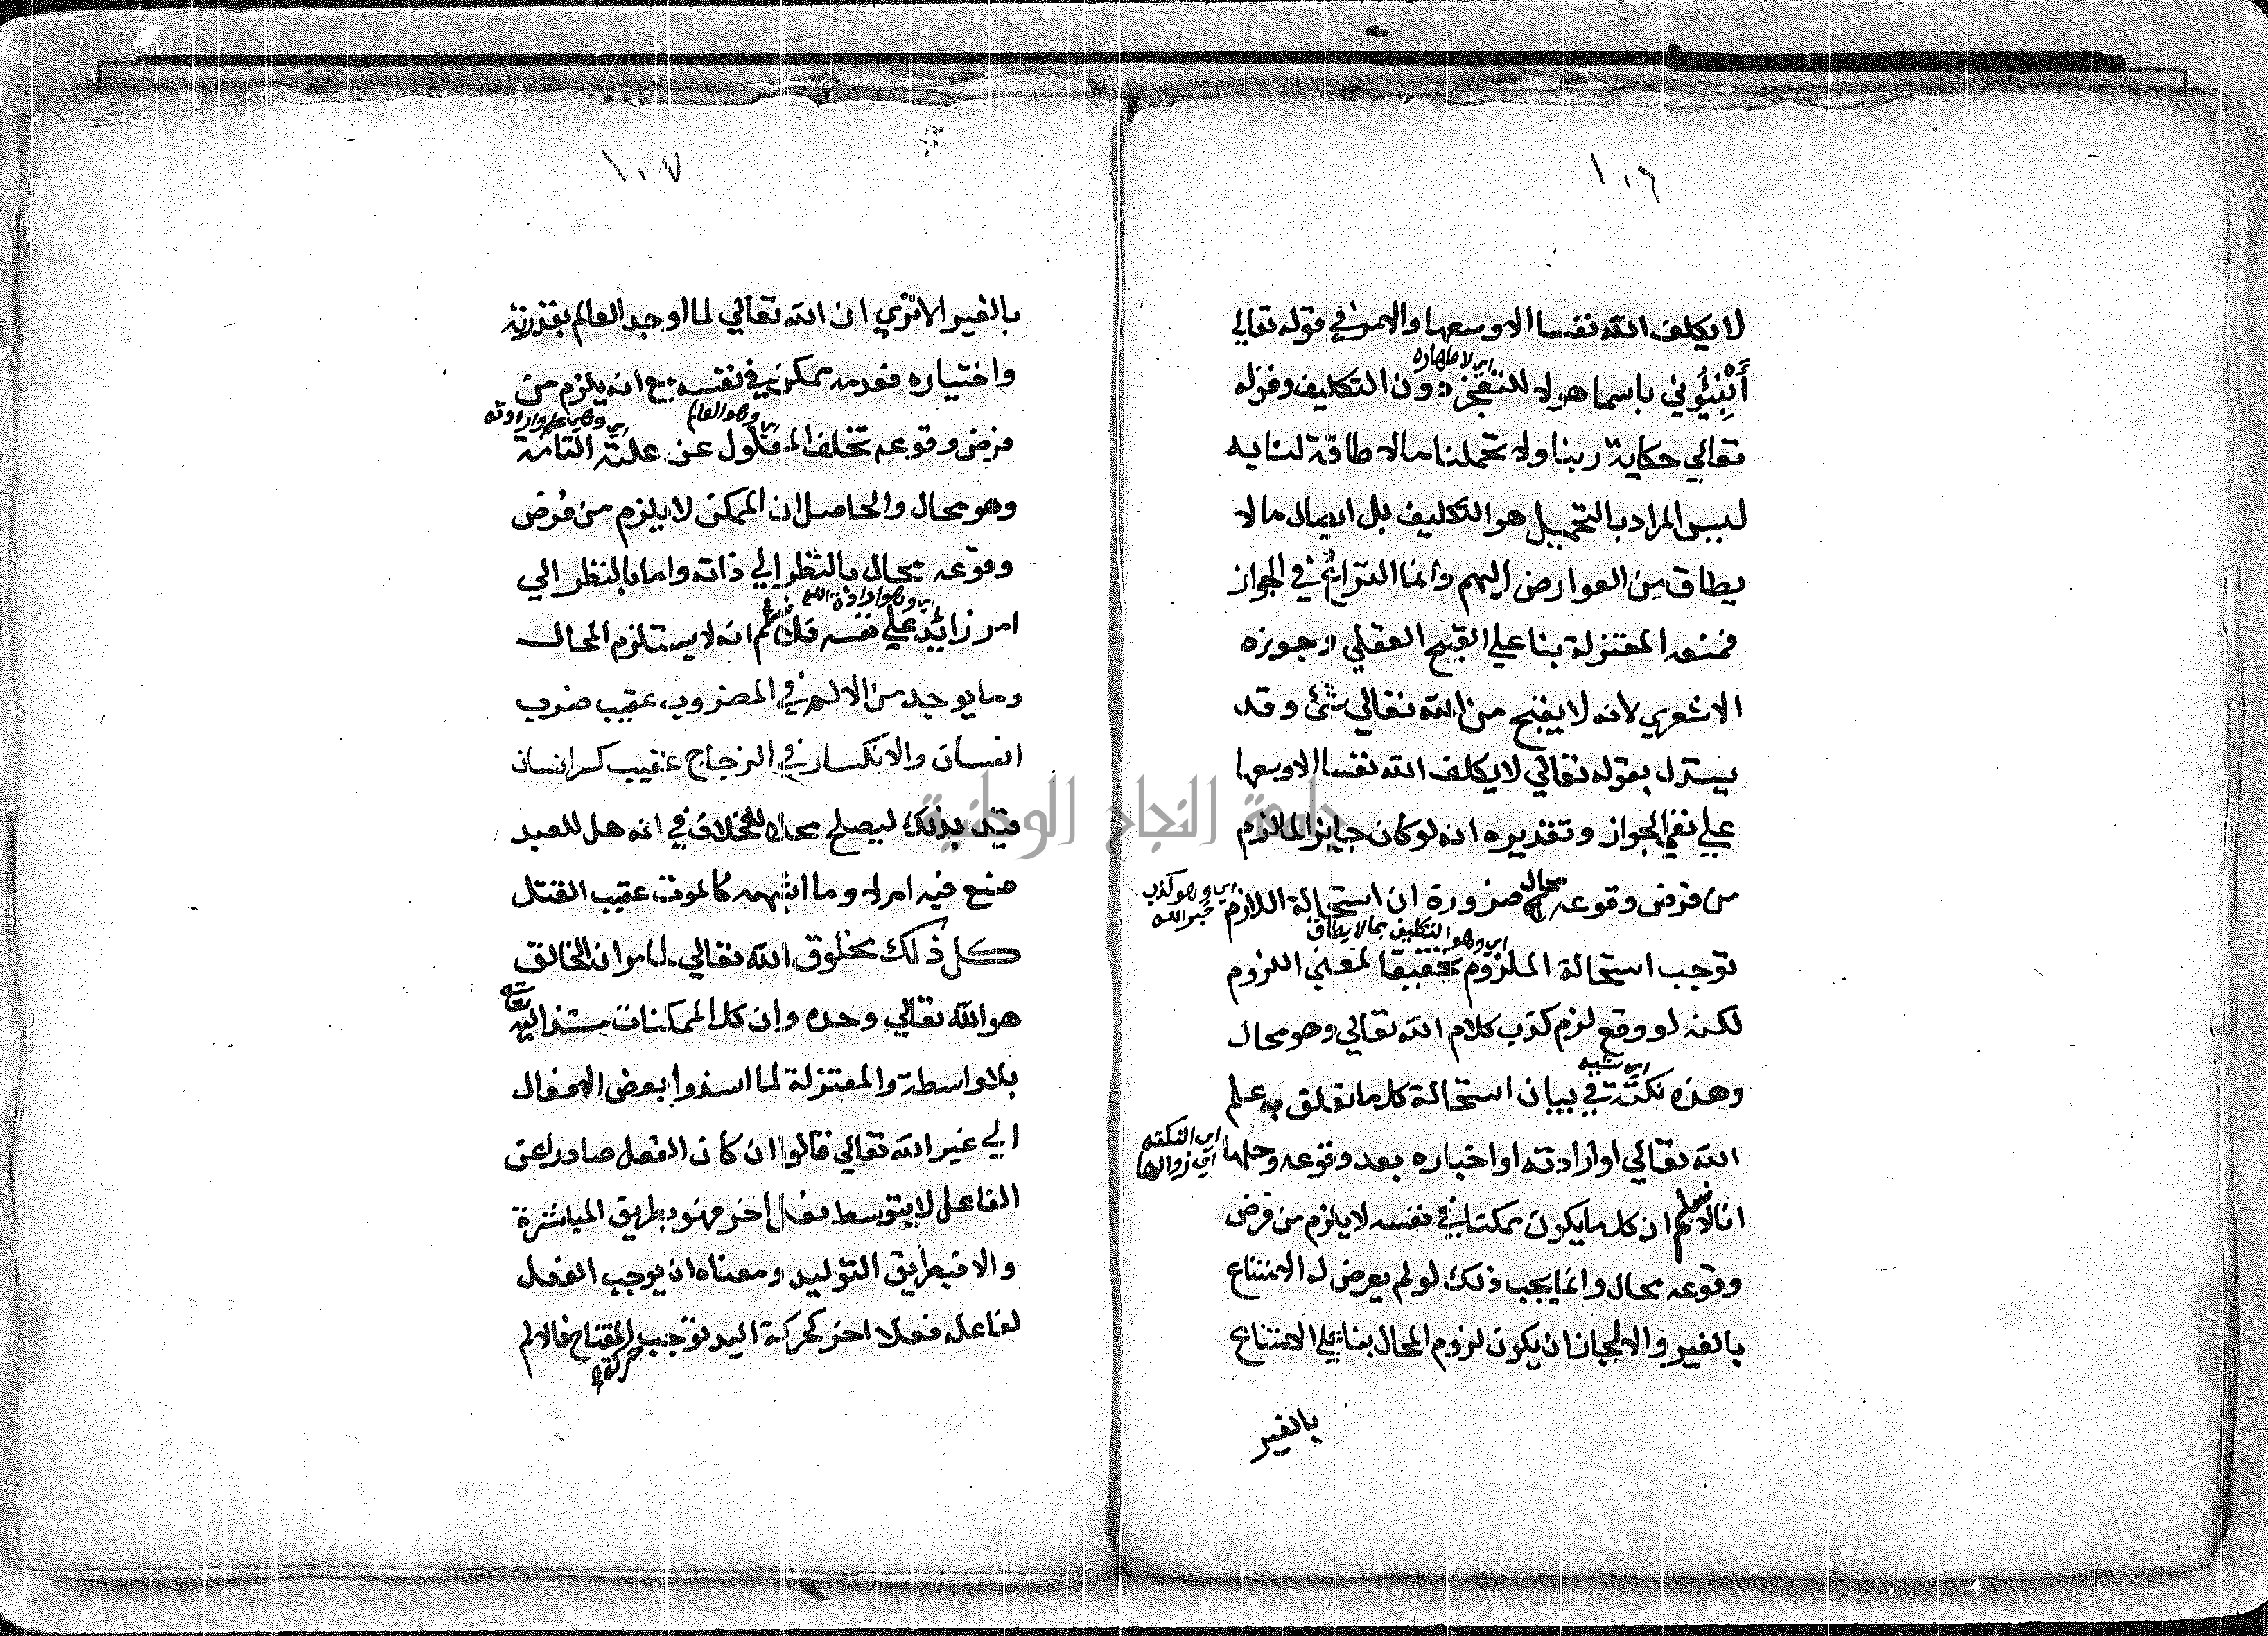 ١٠٦
لا يكلف الله نفسا الا وسعها والامر في قوله تعالي
أَنْبِئُوني باسما هولا للتعجيز دون التكليف وقوله
تعالي حكاية ربنا ولا تحملنا ما لا طاقة لنا به
ليس المراد بالتحميل هو التكليف بل ايصال ما لا
يطاق من العوارض اليهم وانما النزاع في الجواز
فمنعه المعتزلة بنا علي القبح العقلي وجوزه
الاشعري لانه لا يقبح من الله تعالي شئ وقد
يستدل بقوله تعالي لا يكلف الله نفسا الا وسعها
علي نفي الجواز وتقديره انه لو كان جايزا لما لزم
من فرض وقوعه محال ضرورة ان استحالة اللازم
اي وهو كذب
خبر الله
اي وهو التكليف بما لا يطاق
توجب استحالة الملزوم تحقيقا لمعني اللزوم
لكنه لو وقع لزم كذب كلام الله تعالي وهو محال
اي شبه
وهذه نكتة في بيان استحالة كل ما تعلق به علم
الله تعالي او ارادته او اخباره بعد وقوعه وحلها
اي النكتة
اي زوالها
انا لا نسلم ان كل ما يكون ممكنا في نفسه لا يلزم من فرض
وقوعه محال وانما يجب ذلك لو لم يعرض له الامتناع
بالغير والا لجاز ان يكون لزوم المحال بنا علي الامتناع
بالغير
١٠٧
بالغير الا تري ان الله تعالي لما اوجد العالم بقدرته
واختياره فعدمه ممكن في نفسه مع انه يلزم من
اي وهو العالم
اي وهي علم وارادته
فرض وقوعه تخلف المعلول عن علته التامة
وهو محال والحاصل ان الممكن لا يلزم من فرض
وقوعه محال بالنظر الي ذاته واما بالنظر الي
اي وهو ارادة الله
امر زائد علي نفسه فلا نسلم انه لا يستلزم المحال
وما يوجد من الالم في المضروب عقيب ضرب
انسان والانكسار في الزجاج عقيب كسر انسان
قيد بذلك ليصلح محلا للخلاف في انه هل للعبد
صنع فيه ام لا وما اشبهه كالموت عقيب القتل
كل ذلك مخلوق الله تعالي لما مر ان الخالق
هو الله تعالي وحده وان كل الممكنات مستند اليه
تعالي
بلا واسطة والمعتزلة لما اسندوا بعض الافعال
الي غير الله تعالي قالوا ان كان الفعل صادرا عن
الفاعل لا بتوسط فعل اخر فهو بطريق المباشرة
والا فبطريق التوليد ومعناه ان يوجب الفعل
لفاعله فعلا اخر كحركة اليد توجب المفتاح فالالم
حركة
جامعة النجاح الوطنية